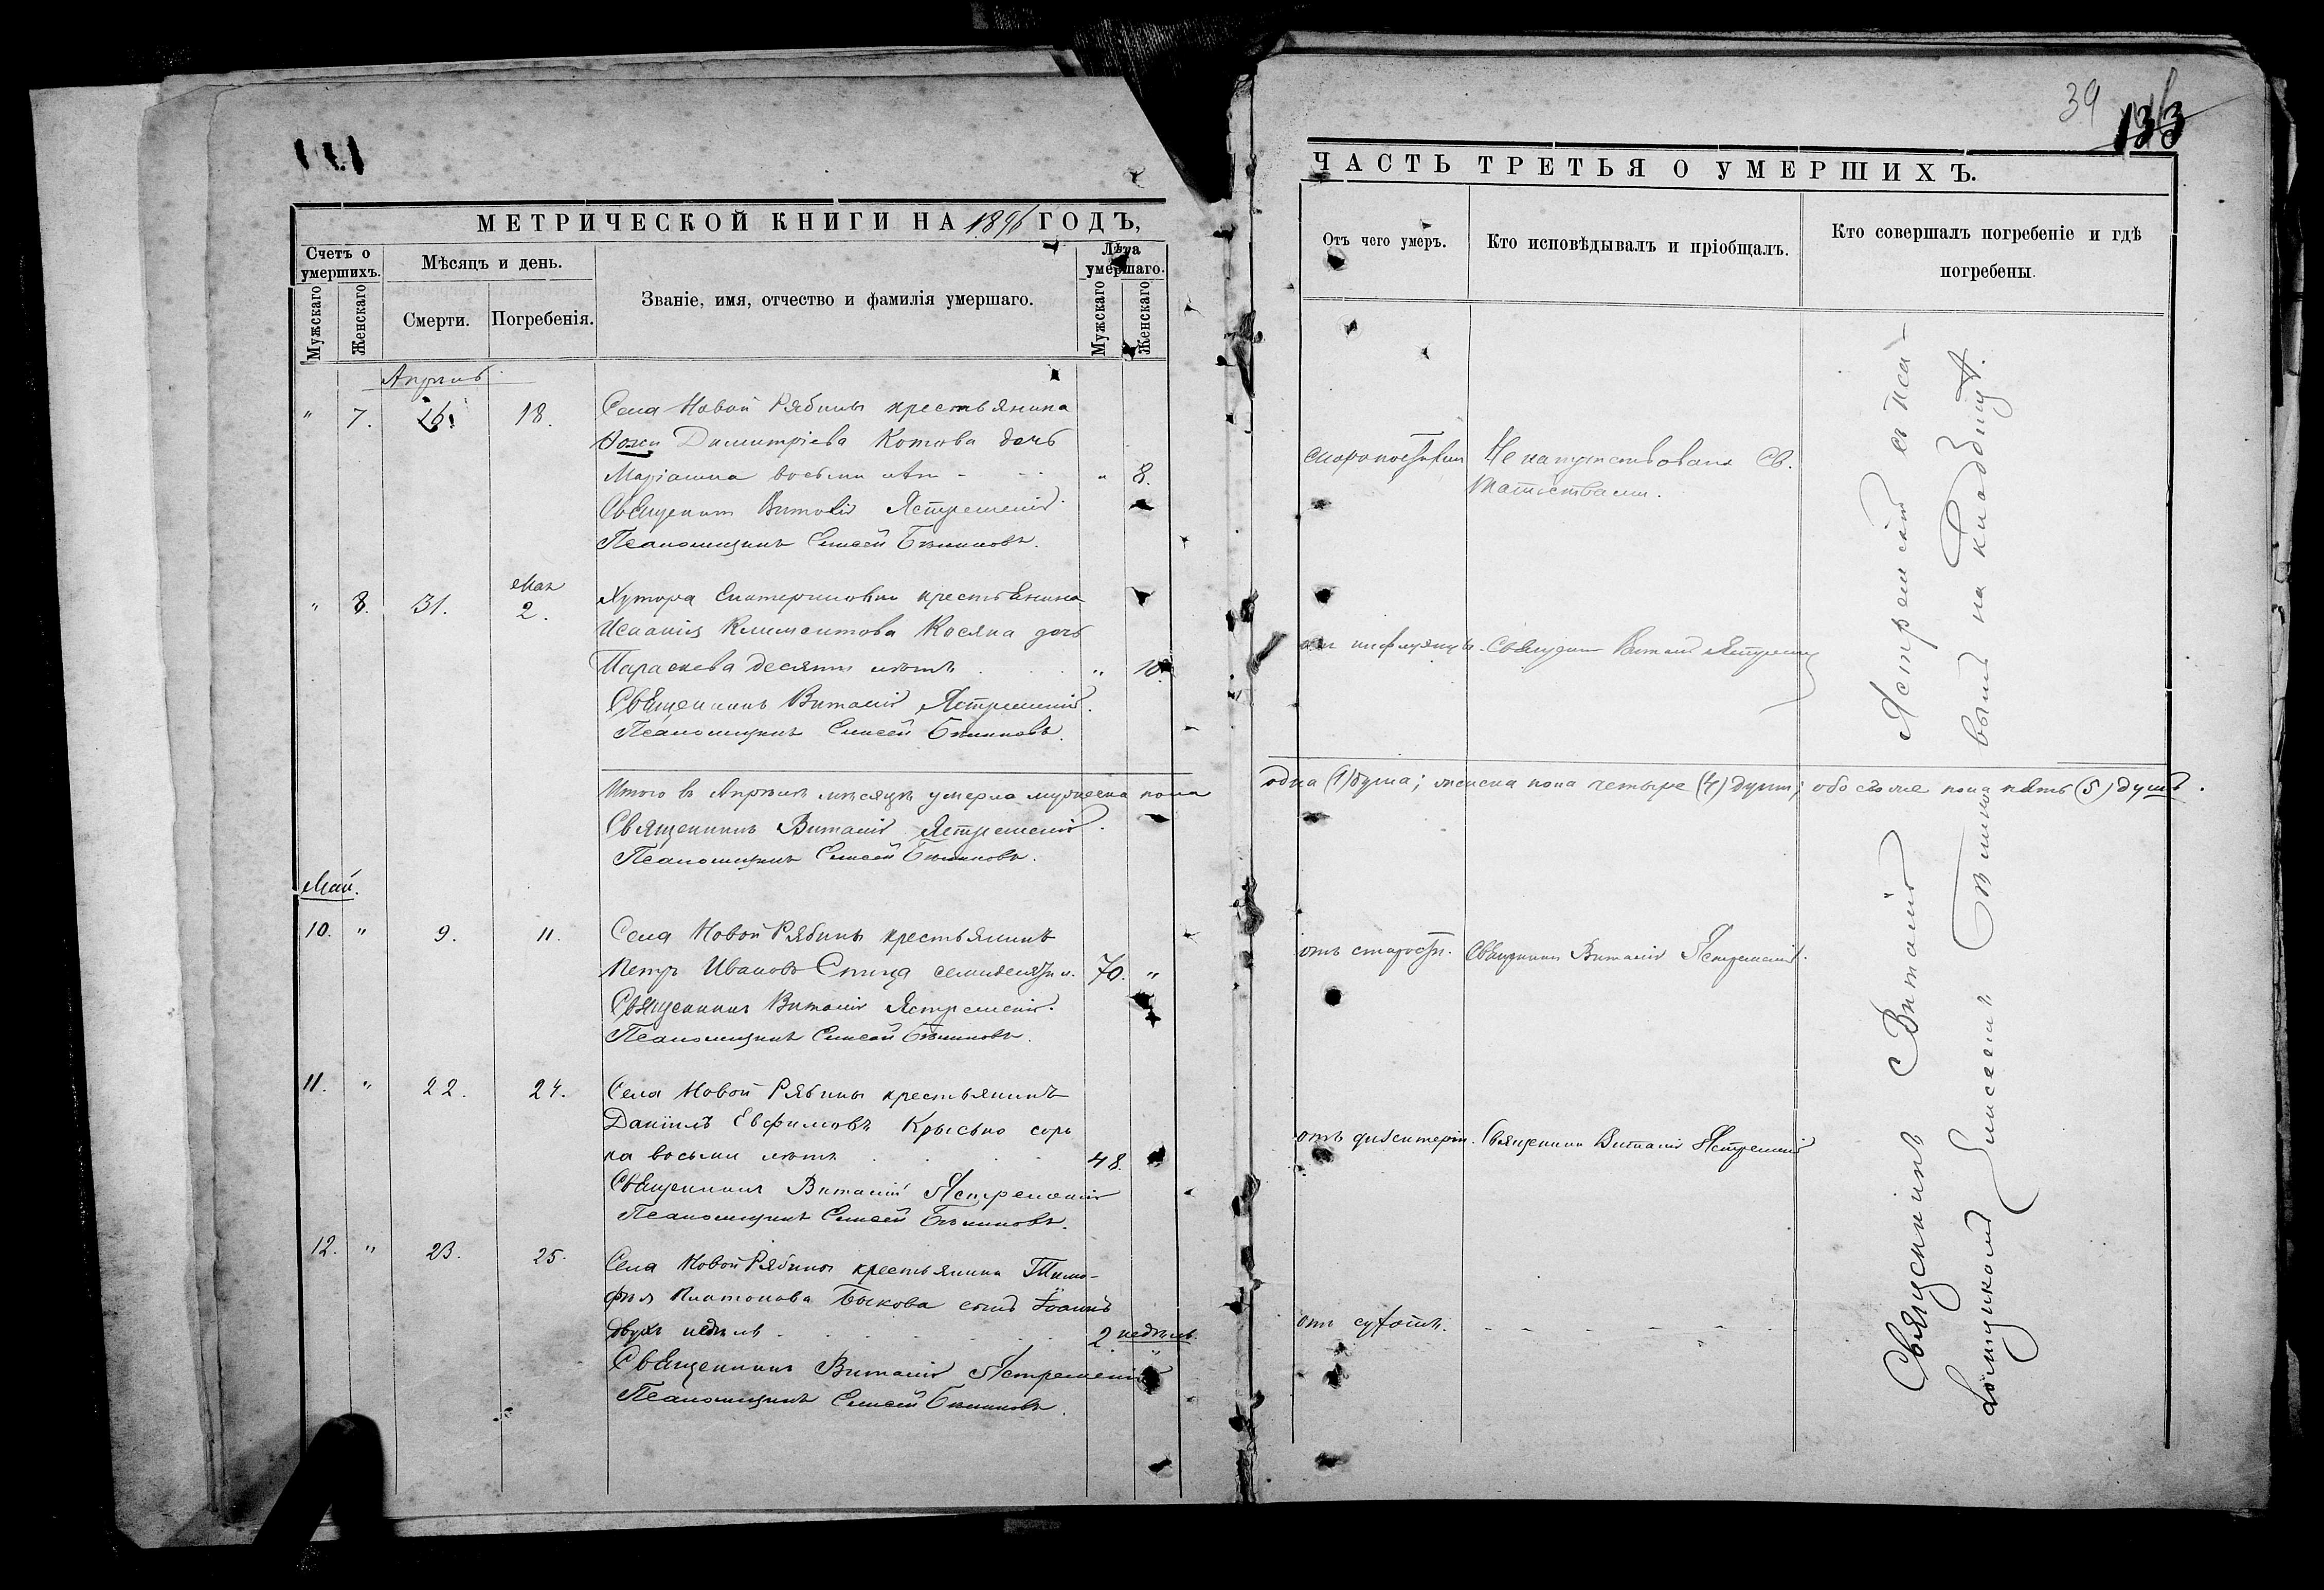 МЕТРИЧЕСКОЙ КНИГИ НА 1896 ГОДЪ,
Счетъ о умершихъ.
Мужскаго
Женскаго
Мѣсяцъ и день.
Смерти.
Погребенія.
Званіе, имя, отчество и фамилія умершаго.
Лѣта умершаго.
Мужскаго
Женскаго
Апрѣль
" 7. 16. 18. Села Новой Рябины крестьянина
Димитріева Котова дочь
Маріанна восьми лѣтъ - " 8.
Священникъ Виталій Ястремскій
Псаломщикъ Елисей
" 8. 31. Мая 2. Хутора Екатериновки крестьянина
Климентова Косяка дочь
Параскева десяти лѣтъ " 10.
Священникъ Виталій Ястремскій.
Псаломщикъ Елисей
Итого въ Апрѣлѣ мѣсяцѣ умерло мужеска пола
Священникъ Виталій Ястремскій.
Псаломщикъ Елисей
Май.
10. " 9. 11. Села Новой Рябины крестьянинъ
Петръ Ивановъ Спица семидесяти л. 70. "
Священникъ Виталій Ястремскій.
Псаломщикъ Елисей
11. " 22. 24. Села Новой Рябины крестьянинъ
Даніилъ Евфимовъ Крысько соро
ка восьми лѣтъ 48.
Священникъ Виталій Ястремскій
Псаломщикъ Елисей
12. " 23. 25. Села Новой Рябины крестьянина Тимо-
фея Платонова Быкова сынъ Іоаннъ
двухъ недѣль 2 недѣль.
Священникъ Виталій Ястремскій
Псаломщикъ Елисей
39
133
ЧАСТЬ ТРЕТЬЯ О УМЕРШИХЪ.
Отъ чего умеръ.
Кто исповѣдывалъ и пріобщалъ.
Кто совершалъ погребеніе и гдѣ погребены.
скоропостижно Не напутствована Св.
Таинствами.
отъ инфлуэнцы. Священникъ Виталій Ястремскій
одна (1) душа; женска пола четыре (4) души; обоего пола пять (5) душъ.
отъ старости. Священникъ Виталій Ястремскій.
отъ дизентеріи. Священникъ Виталій Ястремскій
отъ сухотъ.
Священникъ Виталій Ястремскій съ пса-
ломщикомъ Елисеемъ на кладбищѣ.